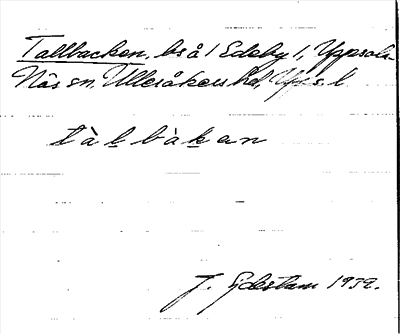 Tallbacken, bs å 1 Edeby 1, Uppsala-
Näs sn, Ulleråkers hd, Upps. l
tàlbàkan
J. Sjdestam 1939.